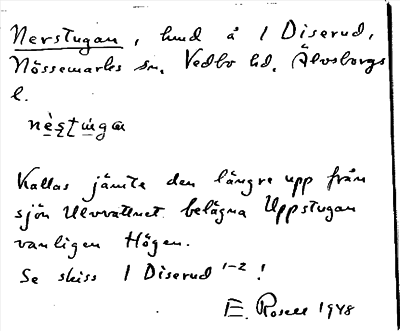 Nerstugan, hmd å 1 Diserud,
Nössemarks sn, Vedbo hd, Älvsborgs
l.
nè̠s̠t̠u̇ga
Kallas jämte den längre upp från
sjön Ulvvattnet belägna Uppstugan
vanligen Högen.
Se skiss 1 Diserud 1-2!
E. Rosell 1948